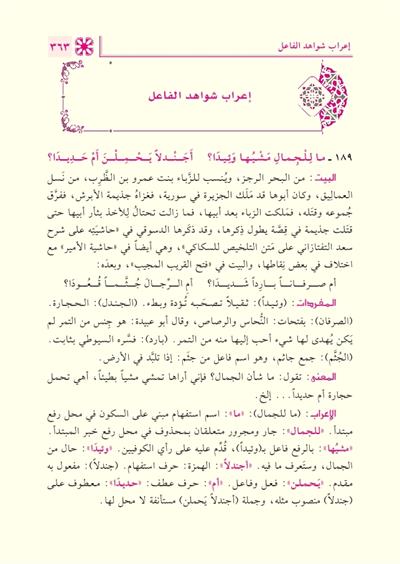 إعراب شواهد الفاعل
٣٦٣
إعراب شواهد الفاعل
١٨٩ ـ ما لِلْجِمالِ مَشْيُها وَئِيدَا؟ أَجَنْدلاً يَحْمِلْنَ أَمْ حَدِيدَا؟
البيت: من البحر الرجز، ويُنسب للزَّباء بنت عمرو بن الظَّرِب، من نَسل
العمالِيق، وكان أبوها قد مَلَك الجزيرة في سورية، فغزاهُ جذيمة الأبرش، ففرَّق
جُموعه وقتَله، فمَلكت الزباء بعد أبيها، فما زالت تحتالُ لِلأخذ بثأر أبيها حتى
قتَلت جذيمة في قِصَّة يطول ذِكرها، وقد ذكَرها الدسوقي في «حاشيَتِه على شرح
سعد التفتازاني على مَتن التلخيص للسكاكي»، وهي أيضاً في «حاشية الأمير» مع
اختلاف في بعض نِقاطها، والبيت في «فتح القريب المجيب»، وبعدَه:
أم صرفاناً بارِداً شَديدَا؟ أمِ الرِّجالَ جُثَّماً قُعُودَا؟
المفردات: (وئيداً): ثقيلاً تصحَبه تُؤدة وبطء. (الجندل): الحجارة.
(الصرفان): بفتحات: النُّحاس والرصاص، وقال أبو عبيدة: هو جِنس من التمر لم
يَكن يُهدى لها شيء أحب إليها منه من التمر. (بارد): فسَّره السيوطي بثابت.
(الجُثَّم): جمع جاثم، وهو اسم فاعل من جثَم: إذا تلبَّد في الأرض.
المعنى: تقول: ما شأن الجمال؟ فإني أراها تمشي مشياً بطيئاً، أهي تحمل
حجارة أم حديداً... إلخ.
الإعراب: (ما للجمال): «ما»: اسم استفهام مبني على السكون في محل رفع
مبتدأ. «للجمال»: جار ومجرور متعلقان بمحذوف في محل رفع خبر المبتدأ.
«مشيُها»: بالرفع فاعل بـ(وئيدا)، قُدِّم عليه على رأي الكوفيين. «وئيدَا»: حال من
الجمال، وستَعرف ما فيه. «أجندلاً»: الهمزة: حرف استفهام. (جندلاً): مفعول به
مقدم. «يَحملن»: فعل وفاعل. «أم»: حرف عطف: «حديدَا»: معطوف على
(جندلاً) منصوب مثله، وجملة (أجندلاً يَحملن) مستأنفة لا محل لها.